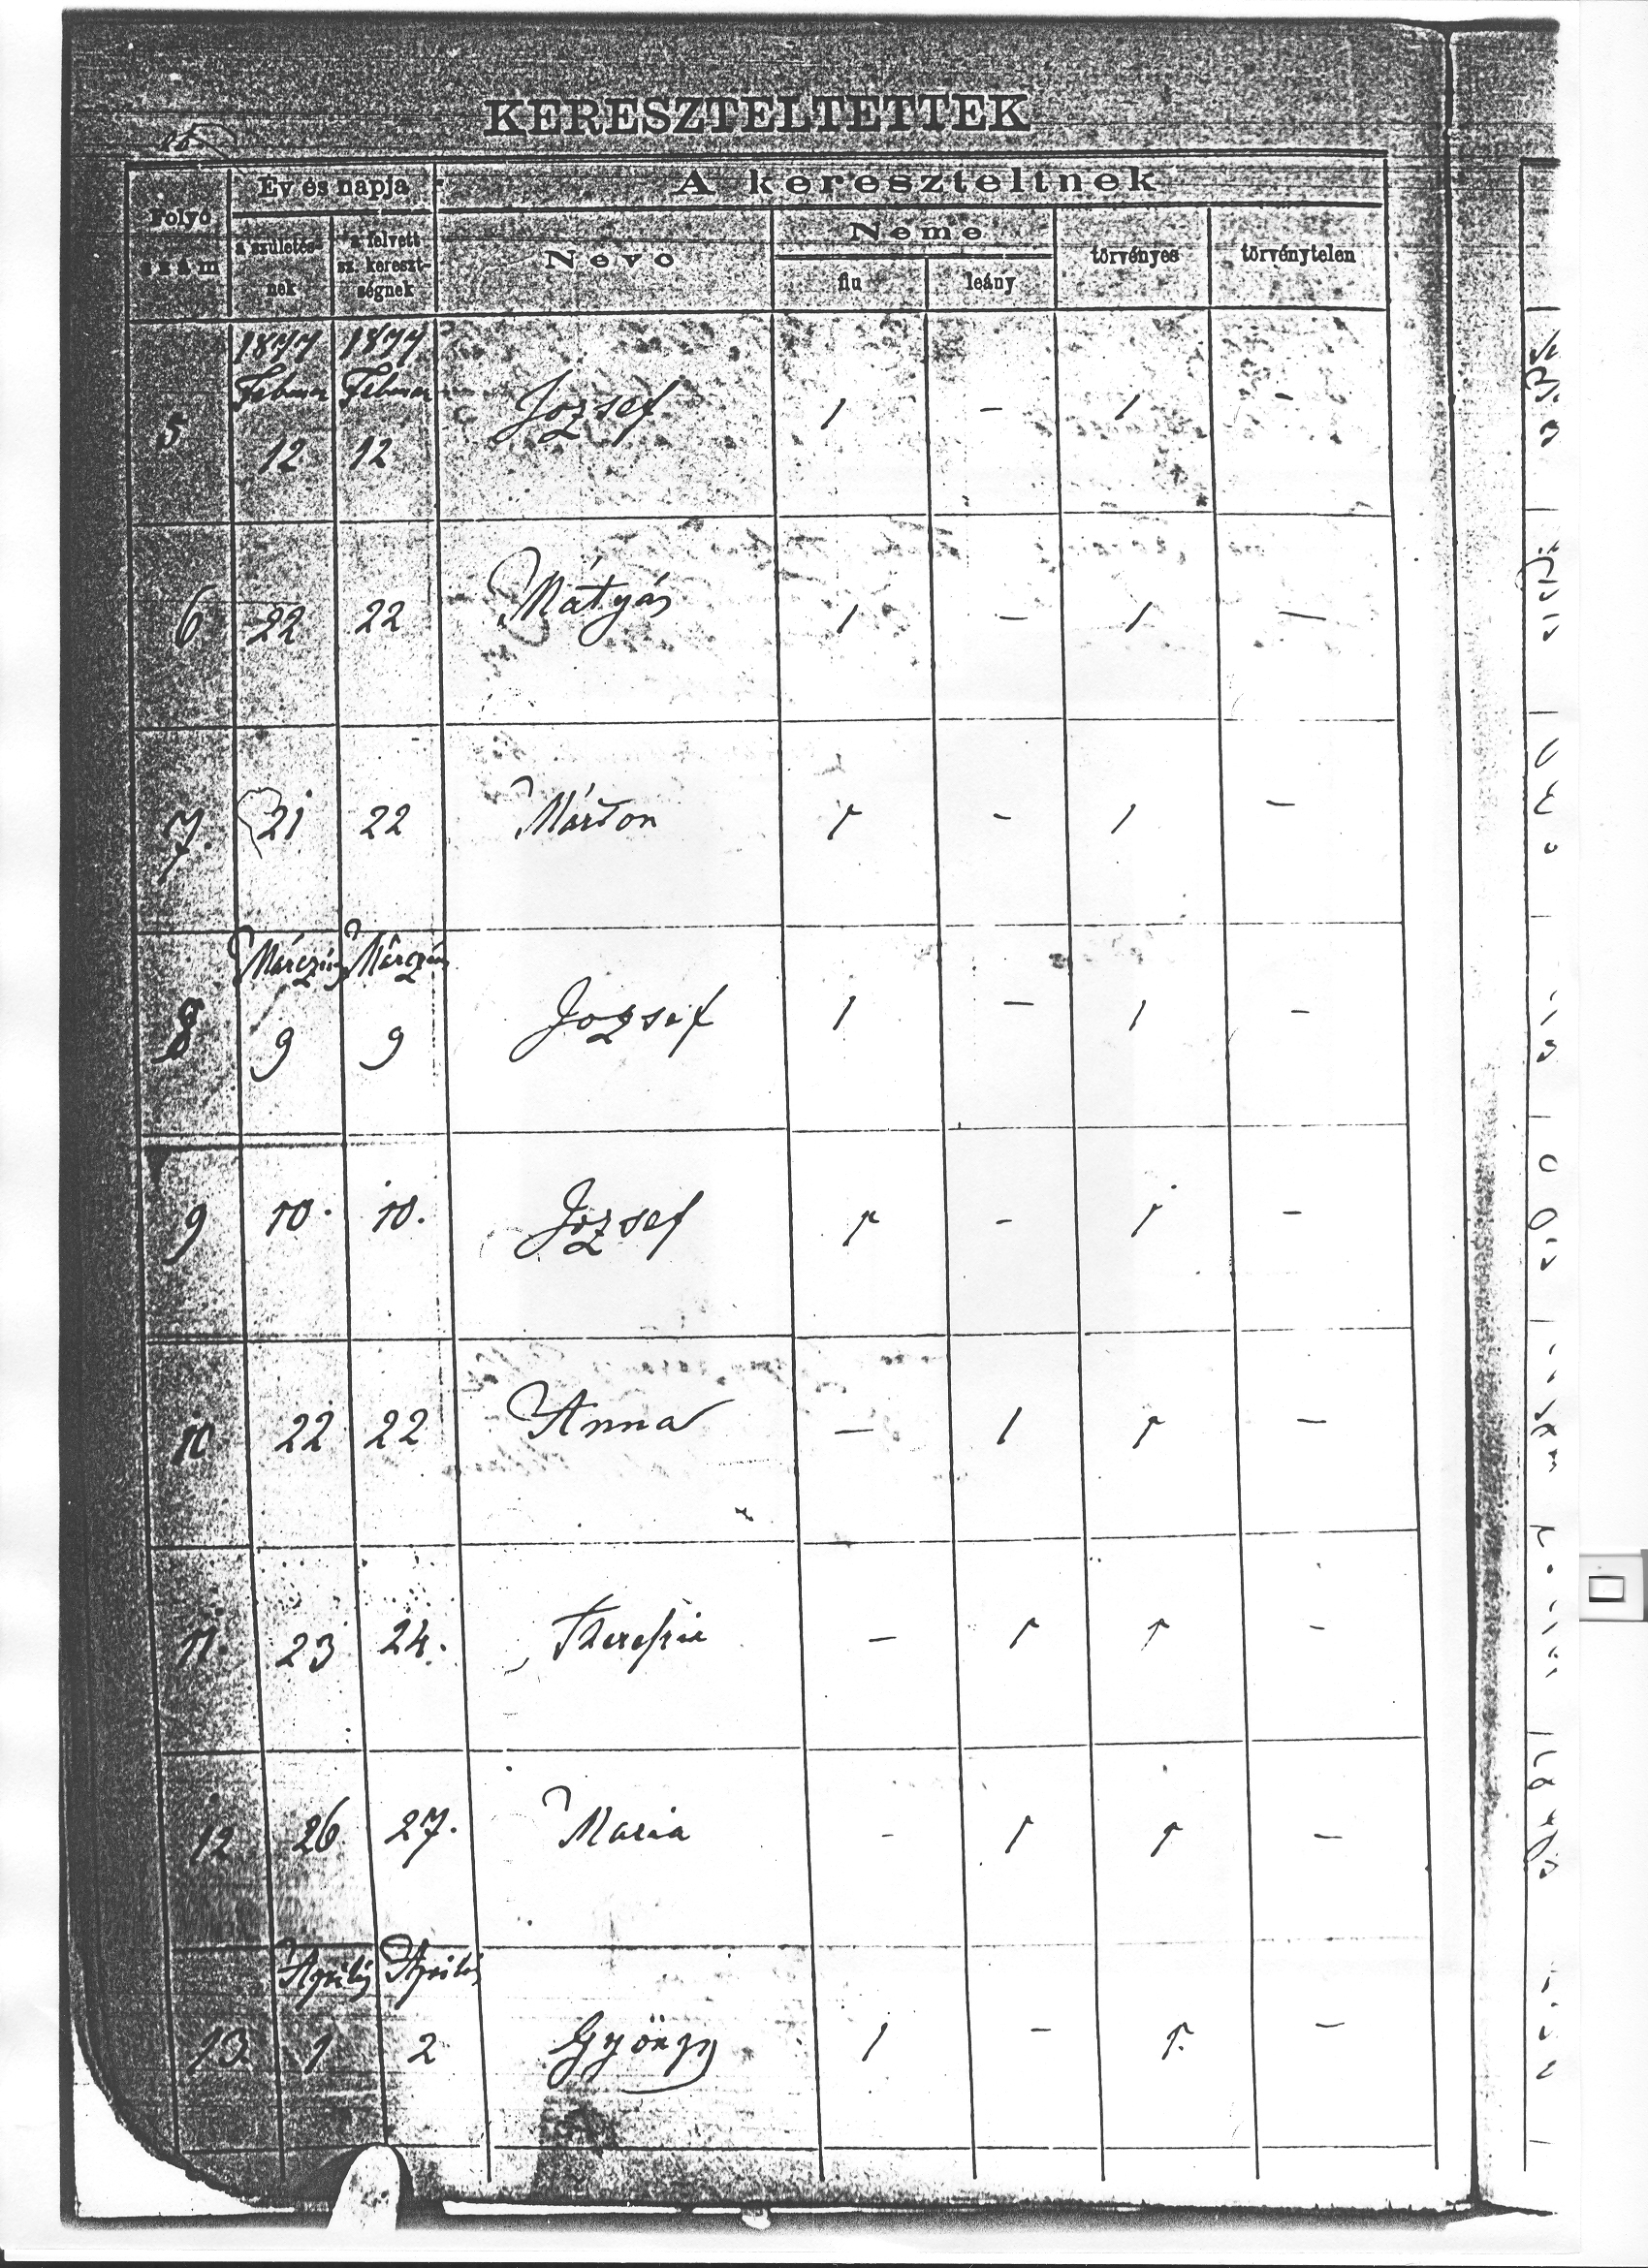 KERESZTELTETTEK
Folyó szám
Év és napja
A kereszteltnek
a születés-nek
a felvett sz. kereszt-ségnek
Neve
Neme
fiu
leány
törvényes
törvénytelen
1877 1877
Februar Februar
5 12 12 József 1 — 1 —
6 22 22 Mátyás 1 — 1 —
7. 21 22 Márton 1 — 1 —
Márczius Márczius
8 9 9 József 1 — 1 —
9 10. 10. József 1 — 1 —
10 22 22 Anna — 1 1 —
11. 23 24. Theresia — 1 1 —
12 26 27. Maria — 1 1 —
Aprilis Aprilis
13 1 2 György 1 — 1. —